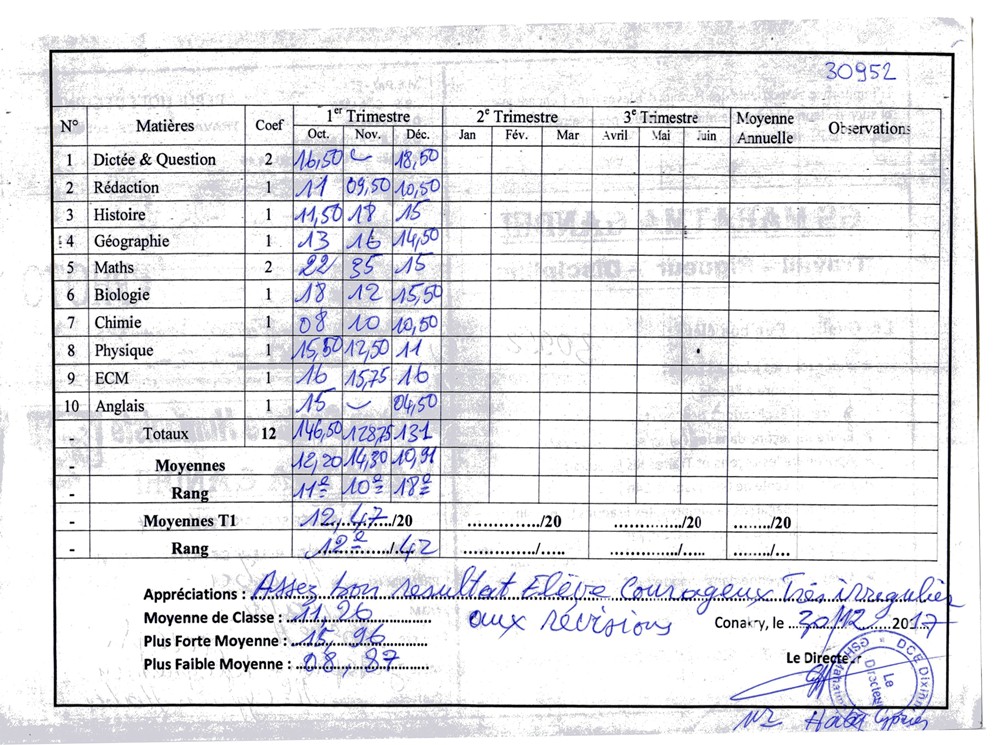 30952
N° Matières Coef 1er Trimestre 2e Trimestre 3e Trimestre Moyenne Annuelle Observations
Oct. Nov. Déc. Jan Fév. Mar Avril Mai Juin
1 Dictée & Question 2 16,50 ~ 18,50
2 Rédaction 1 11 09,50 10,50
3 Histoire 1 11,50 18 15
4 Géographie 1 13 16 14,50
5 Maths 2 22 35 15
6 Biologie 1 18 12 15,50
7 Chimie 1 08 10 10,50
8 Physique 1 15,50 12,50 11
9 ECM 1 16 15,75 16
10 Anglais 1 15 ~ 04,50
- Totaux 12 146,50 128,75 131
- Moyennes 12,20 14,30 10,91
- Rang 11e 10e 18e
- Moyennes T1 12,47/20 ............/20 ............/20 ......../20
- Rang 12e/42 ............/..... ............/..... ......./...
Appréciations : Assez bon resultat Elève Courageux Très irregulier
aux révisions
Moyenne de Classe : 11,26
Conakry, le 30/12 2017
Plus Forte Moyenne : 15,96
Plus Faible Moyenne : 08,87
Le Directeur
DCE Dixinn
Le